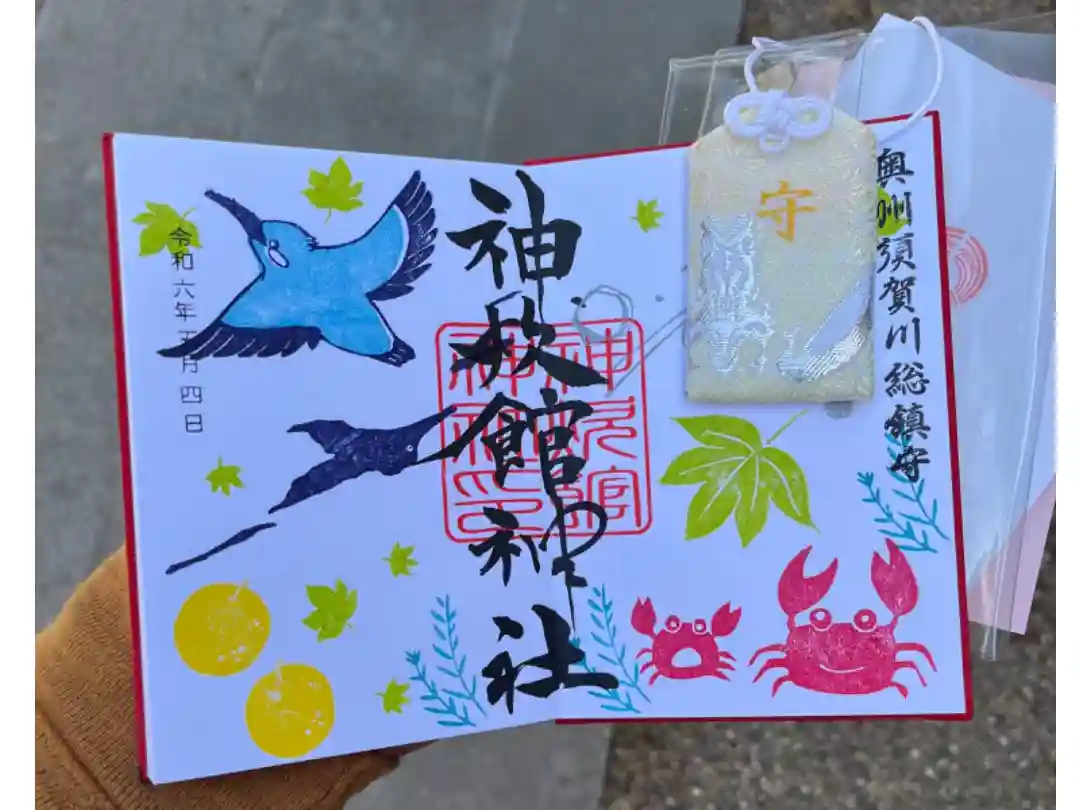 奥州須賀川総鎮守
守
神炊館神社
神炊館
神社印
令和六年五月四日